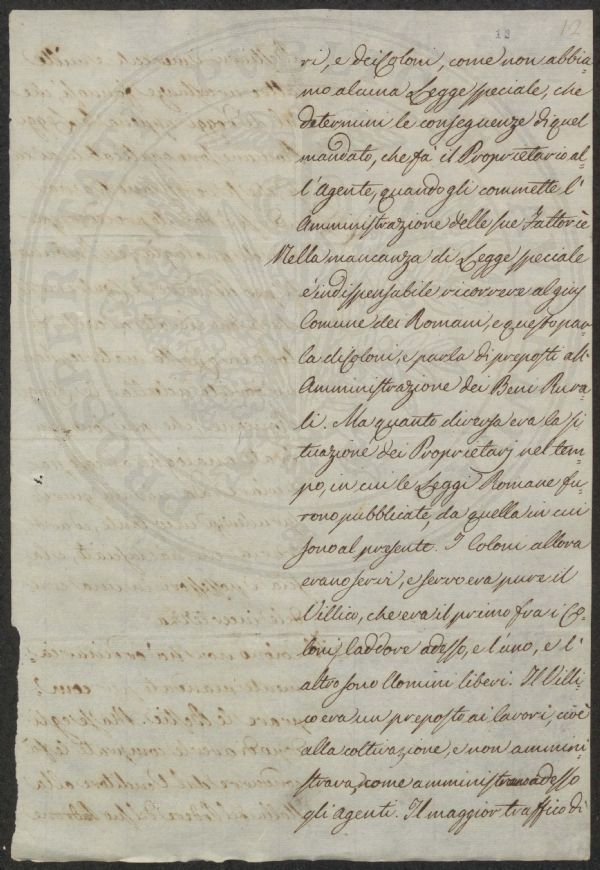 13 12
ri, e dei Coloni, come non abbia=
mo alcuna Legge speciale, che
determini le conseguenze di quel
mandato, che fà il Proprietario al=
l'Agente, quando gli commette l'
Amministrazione delle sue Fattorie
Nella mancanza di Legge speciale
è indispensabile ricorrere al gius
Comune dei Romani, e questo par
la di Coloni, e parla di preposti all'
Amministrazione dei Beni Rura=
li. Ma quanto diversa era la si
tuazione dei Proprietarj nel tem=
po, in cui le Leggi Romane fu=
rono pubblicate, da quella in cui
sono al presente. I Coloni allora
erano servi, e servo era pure il
Villico, che era il primo fra i Co=
loni, laddove adesso, e l'uno, e l'
altro sono Uomini liberi. Il Villi=
co era un preposto ai lavori, cioè
alla coltivazione, e non ammini=
strava, come amministrano adesso
gli Agenti. Il maggior traffico di